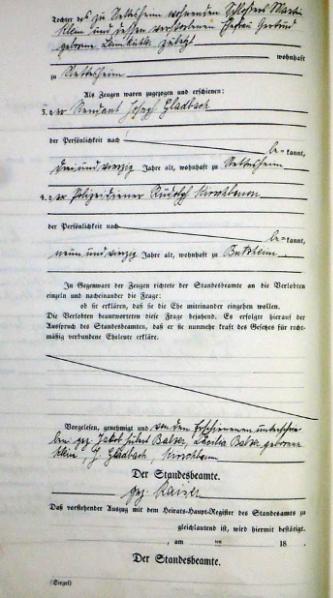 Tochter des zu Nettesheim wohnenden Schlossers Martin
Klein und dessen verstorbenen Ehefrau Gertrud
geborene zuletzt
wohnhaft
zu Nettesheim
Als Zeugen waren zugezogen und erschienen:
3. der Rendant Joseph Gladbach
der Persönlichkeit nach
be-kannt,
drei und vierzig Jahre alt, wohnhaft zu Nettesheim
4. der Polizeidiener Rudolph Kirschbaum
der Persönlichkeit nach
be-kannt,
neun und vierzig Jahre alt, wohnhaft zu Butzheim
In Gegenwart der Zeugen richtete der Standesbeamte an die Verlobten
einzeln und nacheinander die Frage:
ob sie erklären, daß sie die Ehe miteinander eingehen wollen.
Die Verlobten beantworteten diese Frage bejahend. Es erfolgte hierauf der
Ausspruch des Standesbeamten, daß er sie nunmehr kraft des Gesetzes für recht-
mäßig verbundene Eheleute erkläre.
Vorgelesen, genehmigt und von den Erschienenen unterschrie-
ben gez. Jakob Hubert Balzer, Cäcilia Balzer geborene
Klein, J. Gladbach, Kirschbaum
Der Standesbeamte.
gez. Kaiser
Daß vorstehender Auszug mit dem Heirats-Haupt-Register des Standesamts zu
gleichlautend ist, wird hiermit bestätigt.
, am ten 18 .
Der Standesbeamte.
(Siegel)